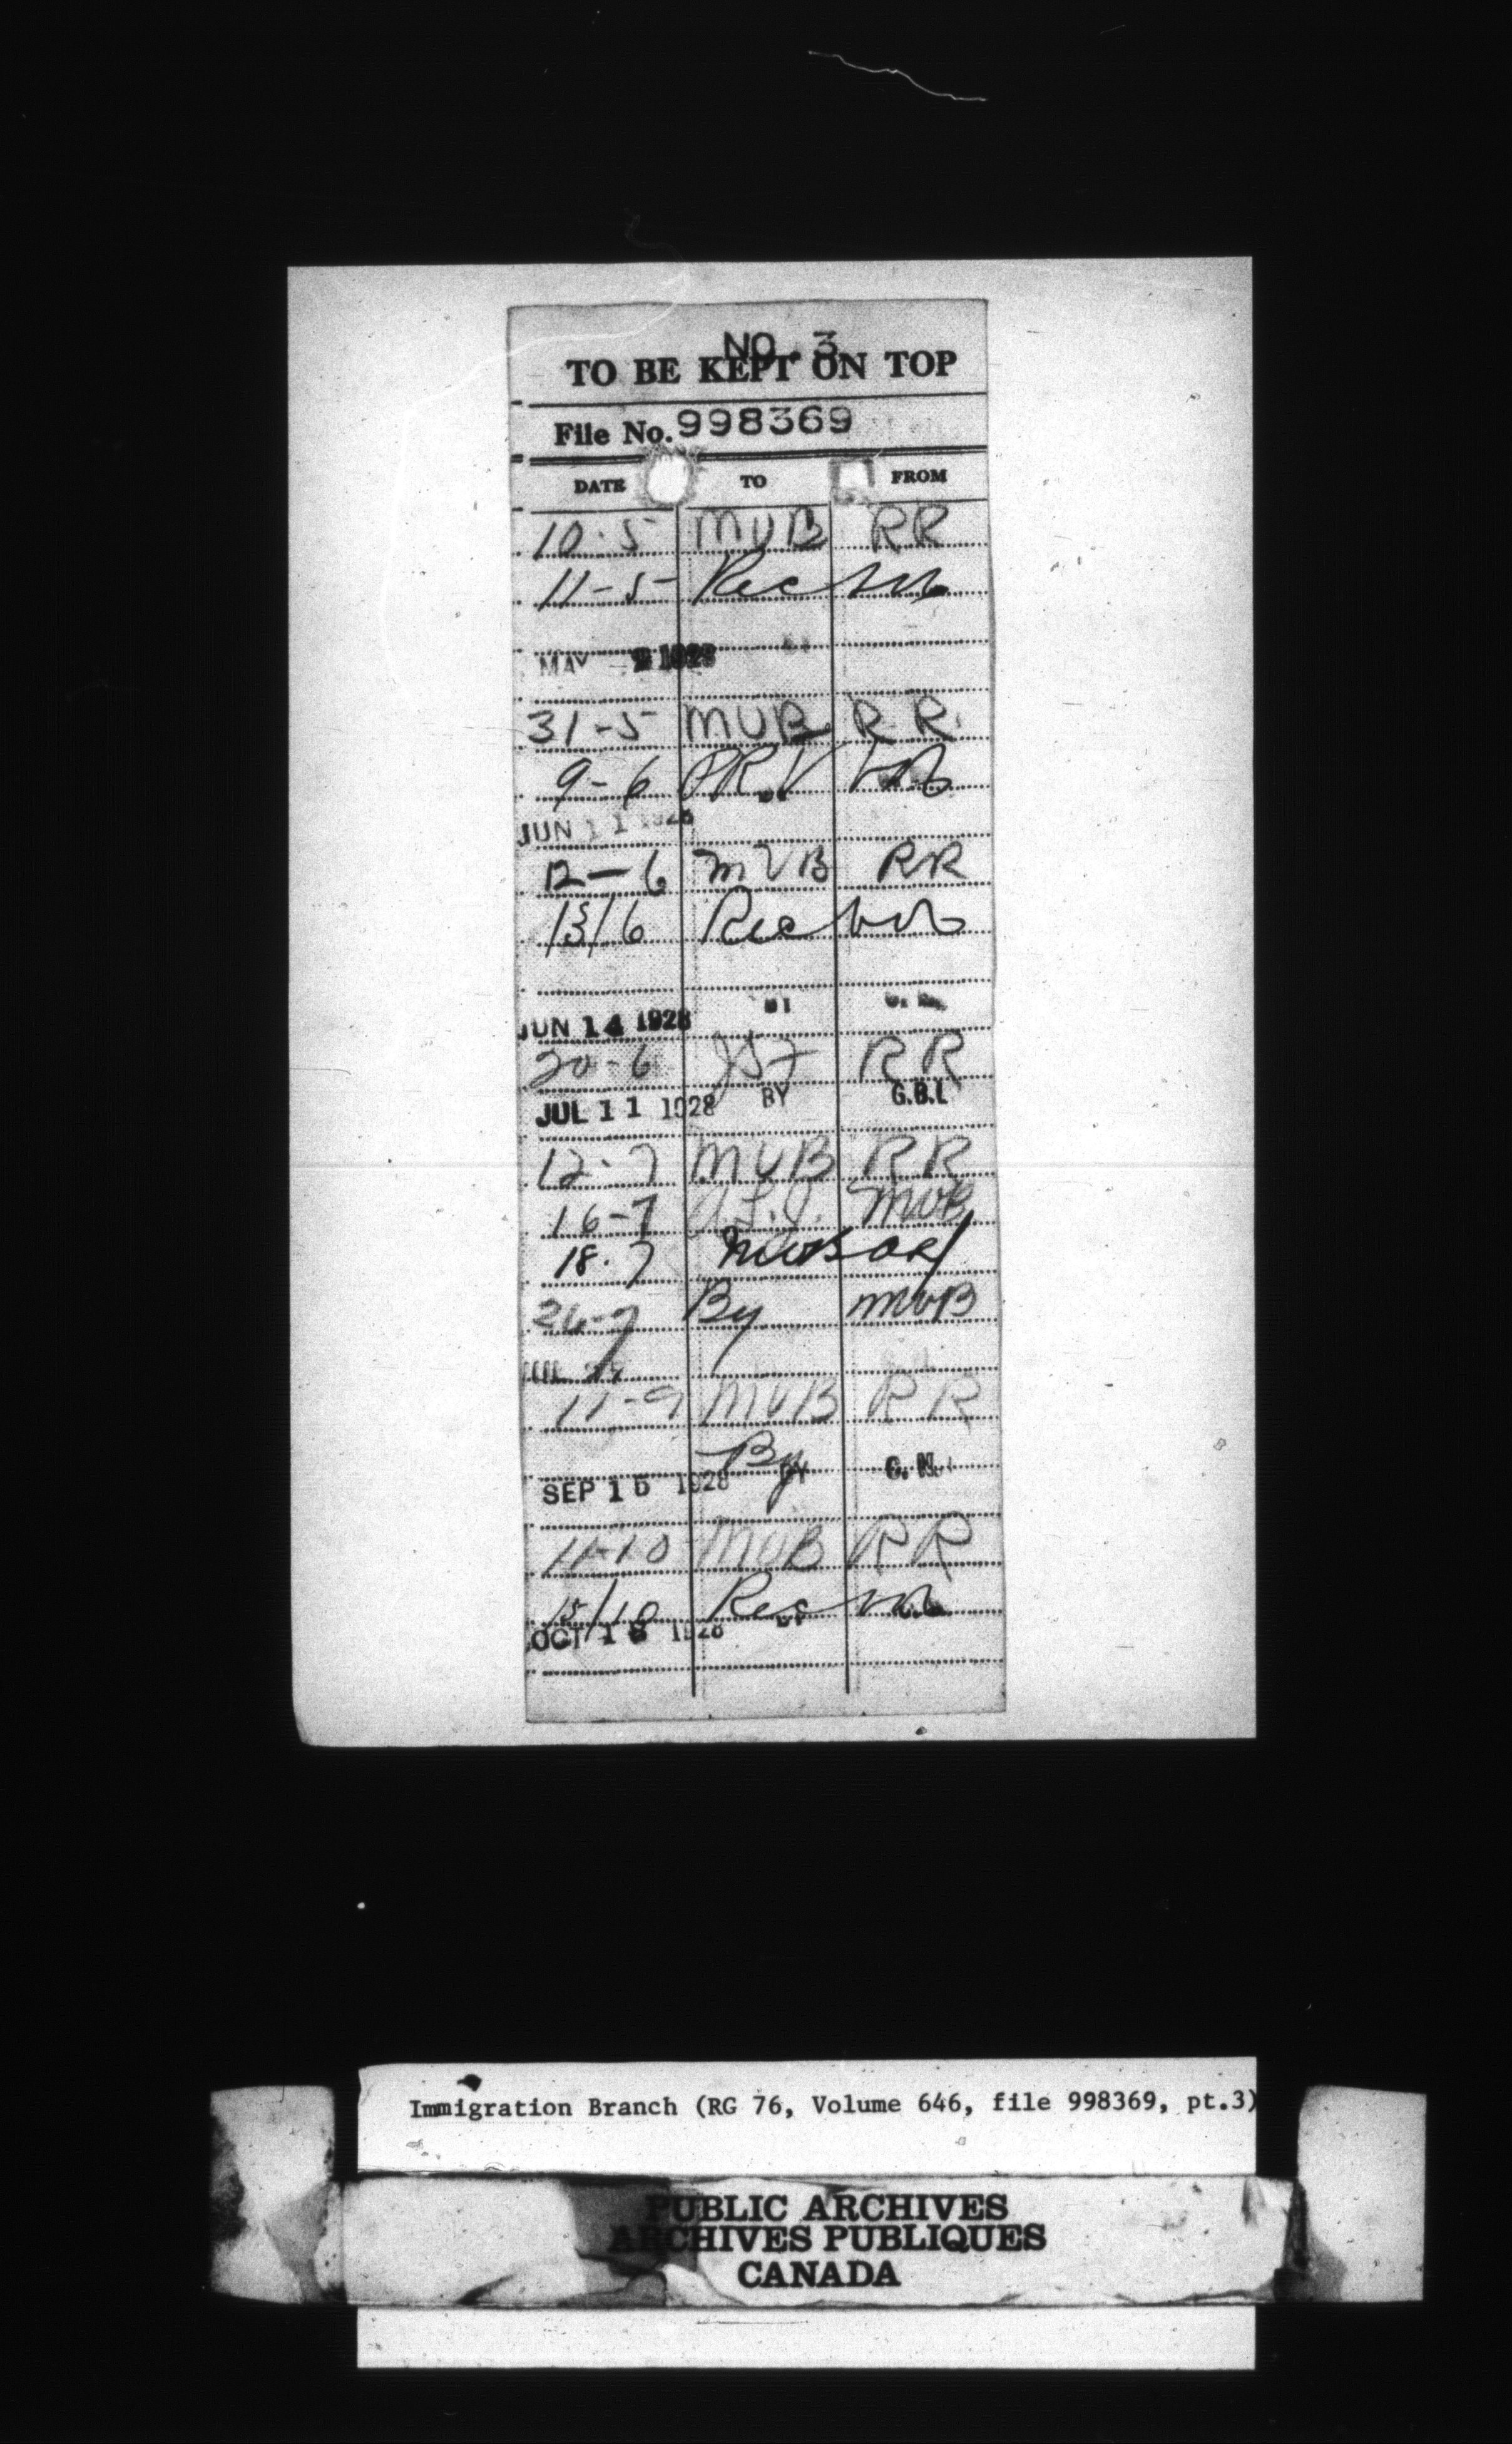 NO. 3
TO BE KEPT ON TOP
File No. 998369
DATE TO FROM
10.5 MVB RR
11-5 Rec
MAY 1928
31-5 MVB RR
9-6
JUN 11 1928
12-6 MVB RR
13/6 Rec
JUN 14 1928
20-6 RR
JUL 11 1928 BY G.B.L
12.7 MVB RR
16-7 MVB
18.7 MVB
26-7 By MVB
11-9 MVB RR
By
SEP 15 1928 BY C. N.
11-10 MVB RR
15/10 Rec
OCT 1928
Immigration Branch (RG 76, Volume 646, file 998369, pt.3)
PUBLIC ARCHIVES
ARCHIVES PUBLIQUES
CANADA